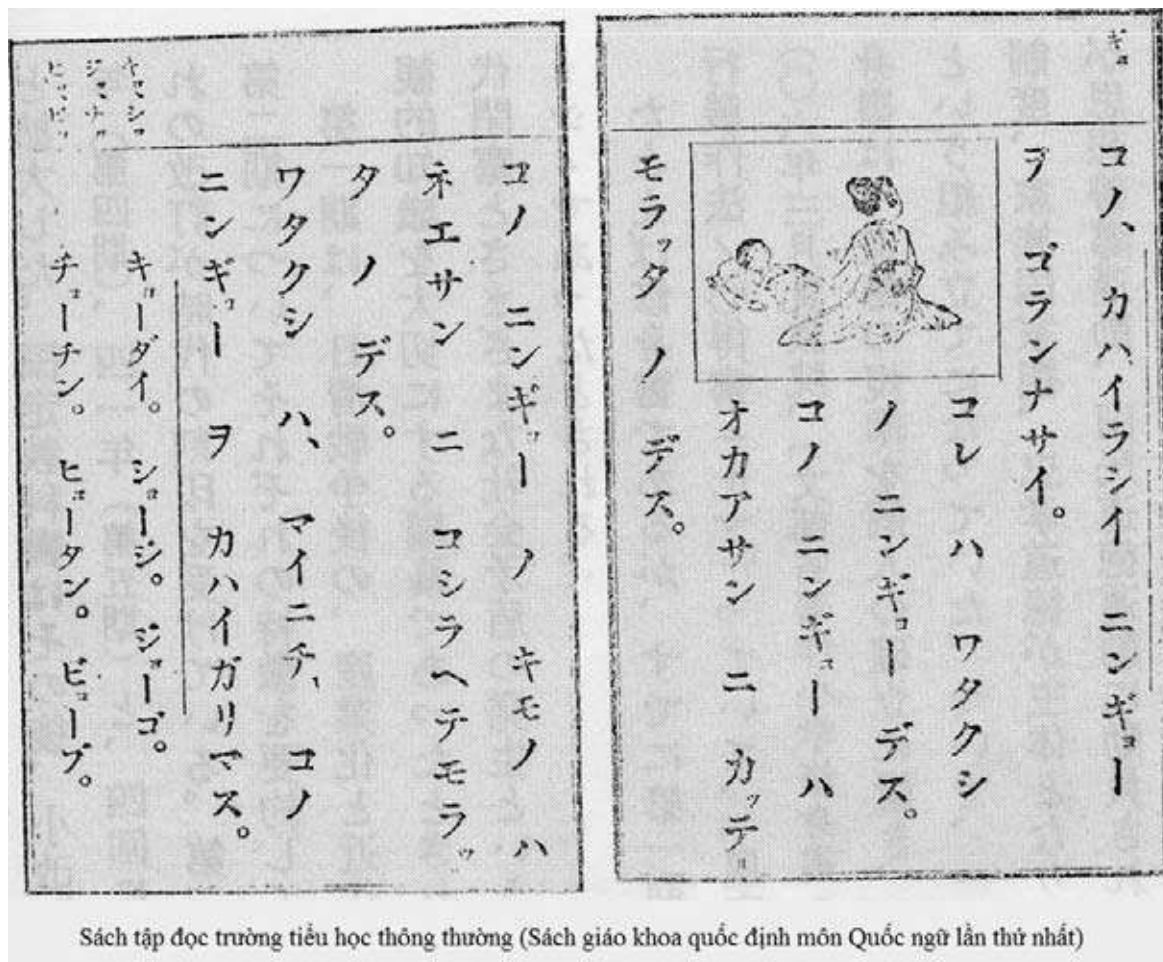 ギョ
コノ、カハイラシイ ニンギョー
ヲ ゴランナサイ。
コレ ハ ワタクシ
ノ ニンギョー デス。
コノ ニンギョー ハ
オカアサン ニ カッテ
モラッタ ノ デス。
キョ ショ
ジョ チョ
ヒョ ビョ
コノ ニンギョー ノ キモノ ハ
ネエサン ニ コシラヘテモラッ
タ ノ デス。
ワタクシ ハ、マイニチ、コノ
ニンギョー ヲ カハイガリマス。
キョーダイ。ショージ。ジョーゴ。
チョーチン。ヒョータン。ビョーブ。
Sách tập đọc trường tiểu học thông thường (Sách giáo khoa quốc định môn Quốc ngữ lần thứ nhất)